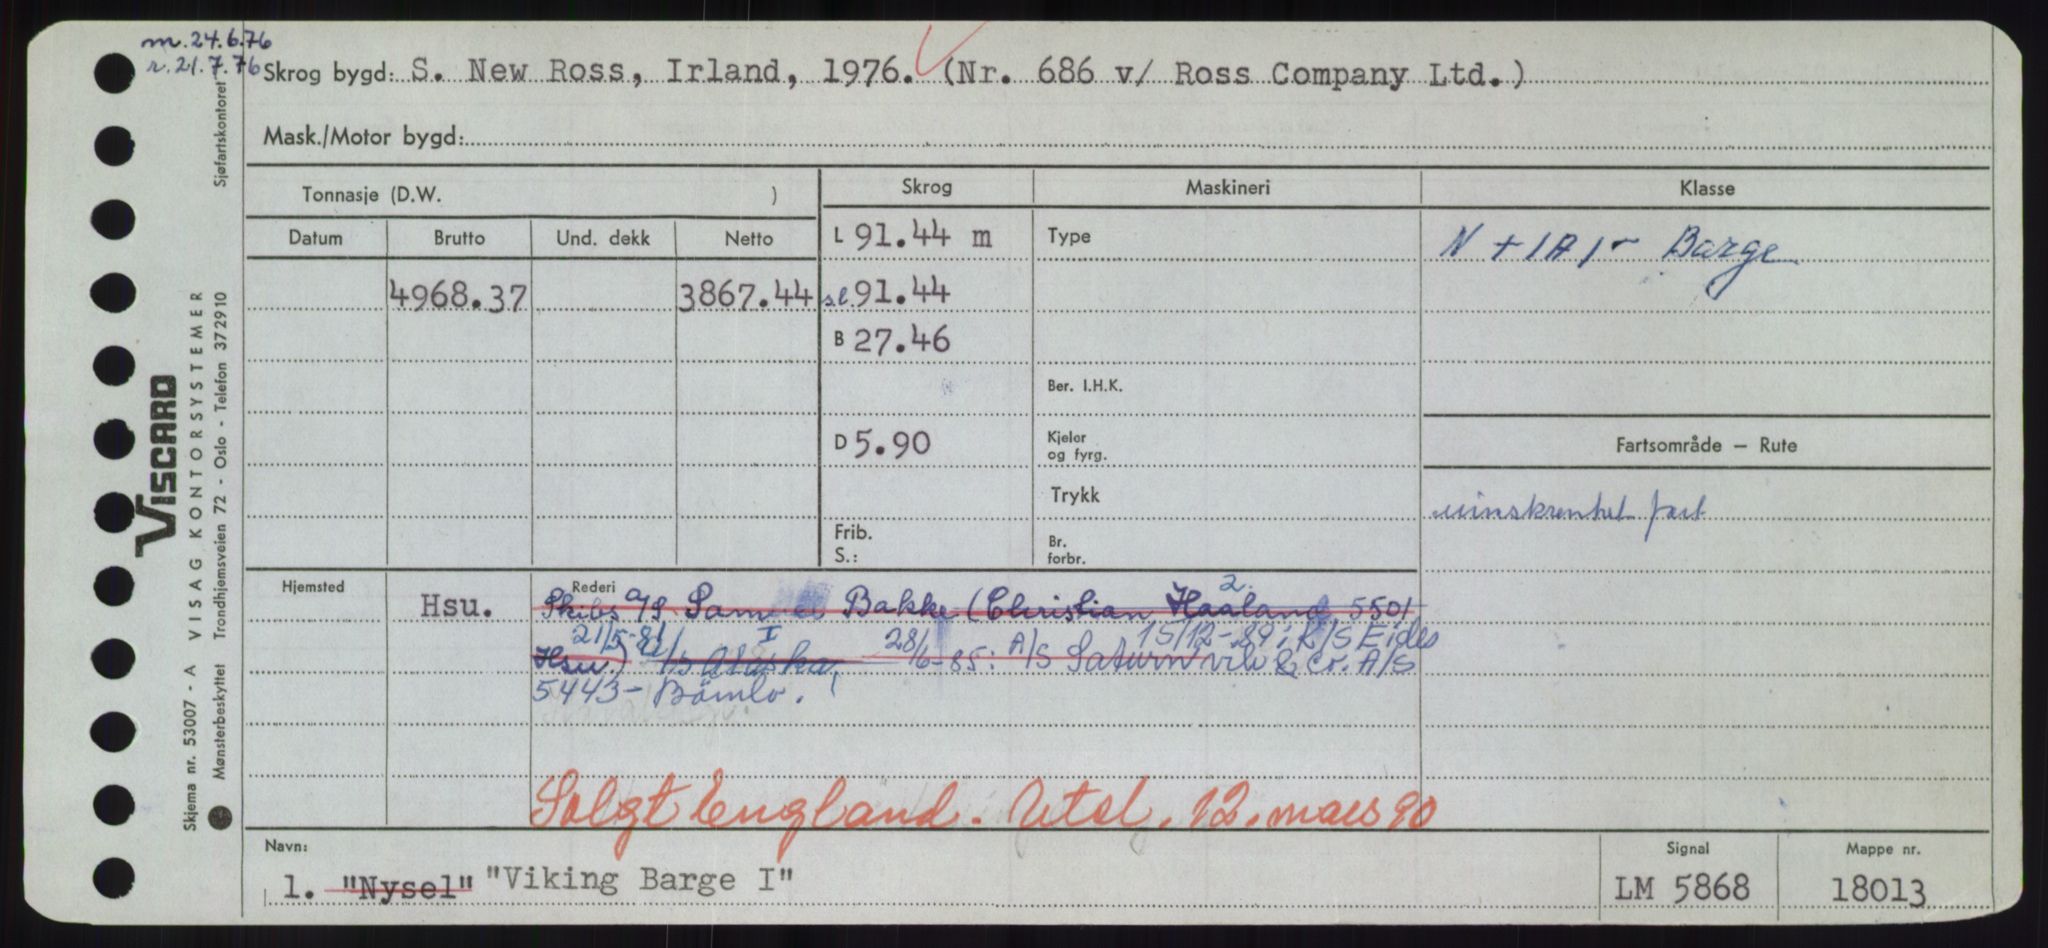 m. 24.6.76
r. 21.7.76
Skrog bygd: S. New Ross, Irland, 1976. (Nr. 686 v/ Ross Company Ltd.)
Mask./Motor bygd:
Tonnasje (D.W. )
Skrog Maskineri Klasse
Datum Brutto Und. dekk Netto
L 91.44 m Type N + 1A1 - Barge
4968.37 3867.44 s.l. 91.44
B 27.46
Ber. I.H.K.
D 5.90 Kjeler og fyrg. Fartsområde — Rute
Trykk uinskrenket fart
Frib.
S.: Br. forbr.
Hjemsted Hsu. Rederi
Skibs A/S Samuel Bakke (Christian Haaland 2. 5501
21/5-81 I 28/6-85: A/S Saturn 15/12-89: K/S Eides
Hsu.) I/S Alaska, vik & Co. A/S
5443 - Bömlo.
Solgt England. Utsl. 12. mars 90
Navn: Signal Mappe nr.
1. "Nysel" "Viking Barge I" LM 5868 18013
VISCARD
Skjema nr. 53007 - A VISAG KONTORSYSTEMER
Mønsterbeskyttet Trondhjemsveien 72 - Oslo - Telefon 372910 Sjøfartskontoret